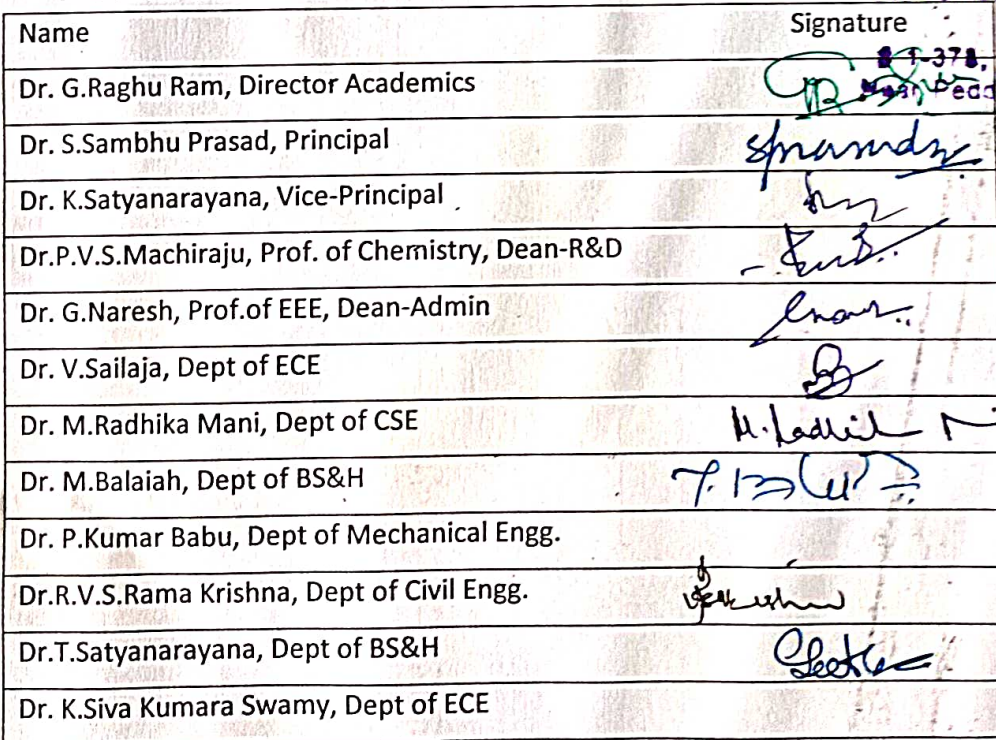 Name Signature
Dr. G.Raghu Ram, Director Academics
Dr. S.Sambhu Prasad, Principal
Dr. K.Satyanarayana, Vice-Principal
Dr.P.V.S.Machiraju, Prof. of Chemistry, Dean-R&D
Dr. G.Naresh, Prof.of EEE, Dean-Admin
Dr. V.Sailaja, Dept of ECE
Dr. M.Radhika Mani, Dept of CSE
Dr. M.Balaiah, Dept of BS&H
Dr. P.Kumar Babu, Dept of Mechanical Engg.
Dr.R.V.S.Rama Krishna, Dept of Civil Engg.
Dr.T.Satyanarayana, Dept of BS&H
Dr. K.Siva Kumara Swamy, Dept of ECE